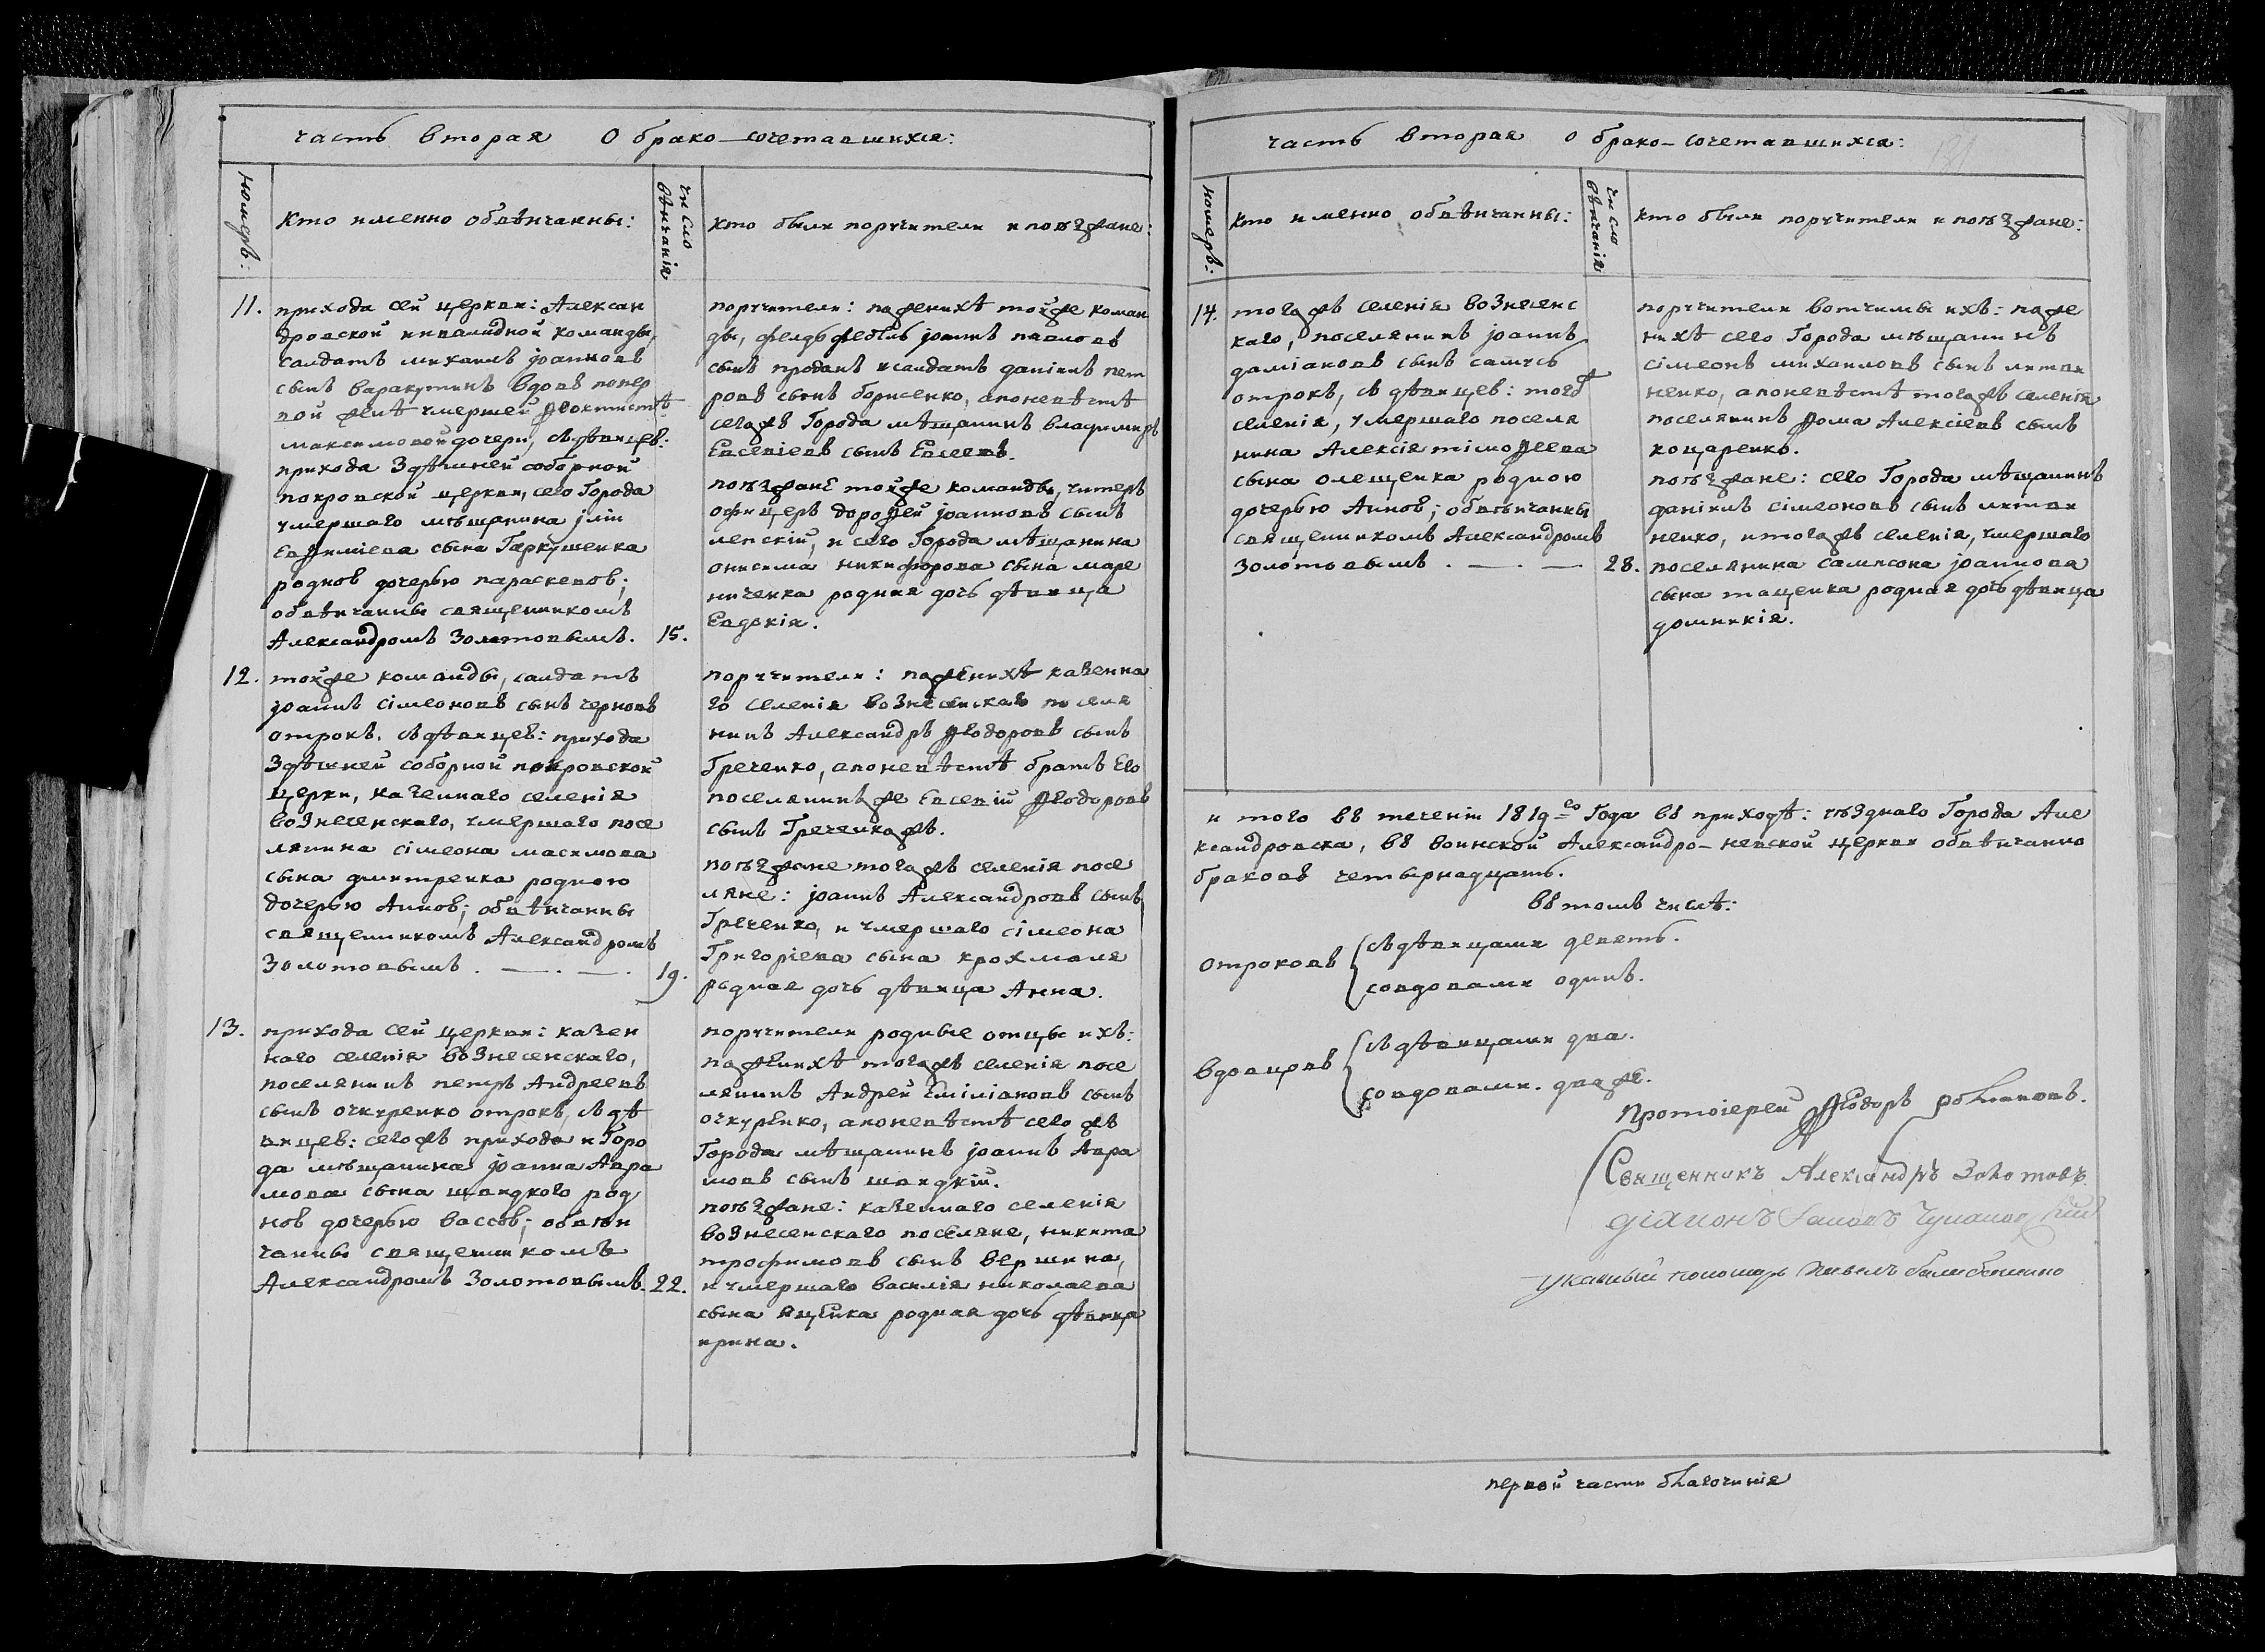 часть вторая О брако-сочетавшихся:
номеръ:
кто именно обвѣнчанны:
число вѣнчанія
кто были поручители и поѣзжане:
11.
прихода сей церкви: Алексан
дровской инвалидной команды,
салдатъ михаилъ іоанновъ
сынъ варакутинъ вдовъ попер
вой женѣ умершей Ѳеоктистѣ
максимовой дочери, съ дѣвицею:
прихода здѣшней соборной
покровской церкви, сего Города
умершаго мѣщанина іліи
Евфиміева сына Гаркушенка
родною дочерью параскевою;
обвѣнчанны священникомъ
Александромъ Золотовымъ.
15.
поручители: пожених​ѣ тойже коман
ды, фелдъфебѣль іоаннъ павловъ
сынъ проданъ и салдатъ даніилъ пет
ровъ сынъ борисенко, а поневѣстѣ
сегожъ Города мѣщанинъ владимиръ
Евсевіевъ сынъ Евсеевъ.
поѣзжане тойже команды, унтеръ
офицеръ дороѳей іоанновъ сынъ
лепскій, и сего Города мѣщанина
онисима никифорова сына маре
ниченка родная дочь дѣвица
Евдокія.
12.
тойже команды, салдатъ
іоаннъ сімеоновъ сынъ черновъ
отрокъ, съ дѣвицею: прихода
Здѣшней соборной покровской
церкви, казеннаго селенія
вознесенскаго, умершаго посе
лянина сімеона масимова
сына дмитренка родною
дочерью Анною; обвѣнчанны
священникомъ Александромъ
Золотовымъ.
19.
поручители: поженихѣ казенна
го селенія вознесенскаго поселя
нинъ Александръ Ѳеодоровъ сынъ
Греченко, а поневѣстѣ братъ Его
поселянинъ же Евсевій Ѳеодоровъ
сынъ Греченкожъ.
поѣзжане тогожъ селенія посе
ляне: іоаннъ Александровъ сынъ
Греченко, и умершаго сімеона
Григоріева сына крохмаля
родная дочь дѣвица Анна.
13.
прихода сей церкви: казен
наго селенія вознесенскаго,
поселянинъ петръ Андреевъ
сынъ очкуренко отрокъ, съ дѣ
вицею: сегожъ прихода и Горо
да мѣщанина іоанна Авра
мова сына швидкого род
ною дочерью вассою; обвѣн
чанны священникомъ
Александромъ Золотовымъ.
22.
поручители родные отцы ихъ:
поженихѣ тогожъ селенія посе
лянинъ Андрей Емиліановъ сынъ
очкуренко, а поневѣстѣ сего жъ
Города мѣщанинъ іоаннъ Авра
мовъ сынъ швидкій.
поѣзжане: казеннаго селенія
вознесенскаго поселяне, никита
трофимовъ сынъ вершина,
и умершаго василія николаева
сына яценка родная дочь дѣвица
ирина.
часть вторая О брако-сочетавшихся:
номеръ:
кто именно обвѣнчанны:
число вѣнчанія
кто были поручители и поѣзжане:
14.
тогожъ селенія вознесенс
каго, поселянинъ іоаннъ
даміановъ сынъ самусь
отрокъ, съ дѣвицею: тогож
селенія, умершаго поселя
нина Алексія тімоѳеева
сына олещенка родною
дочерью Анною; обвѣнчанны
священникомъ Александромъ
Золотовымъ.
28.
поручители вотчимы ихъ: поже
нихѣ сего Города мѣщанинъ
сімеонъ михаиловъ сынъ литви
ненко, а поневѣстѣ тогожъ селенія
поселянинъ Ѳома Алексіевъ сынъ
коцаренко.
поѣзжане: сего Города мѣщанинъ
даніилъ сімеоновъ сынъ литви
ненко, и тогожъ селенія, умершаго
поселянина сампсона іоаннова
сына тащенка родная дочь дѣвица
домникія.
и того въ теченіи 1819го Года въ приходѣ: уѣзднаго Города Але
ксандровска, въ воинской Александро-невской церкви обвѣнчанно
браковъ четырнадцать.
въ томъ числѣ:
отроковъ
съ дѣвицами девять.
совдовами одинъ.
вдовцовъ
съ дѣвицами два.
совдовами два же.
Протоіерей Ѳеодоръ романовъ.
Священникъ Александръ Золотовъ.
діяконъ
указный пономарь
первой части благочинія